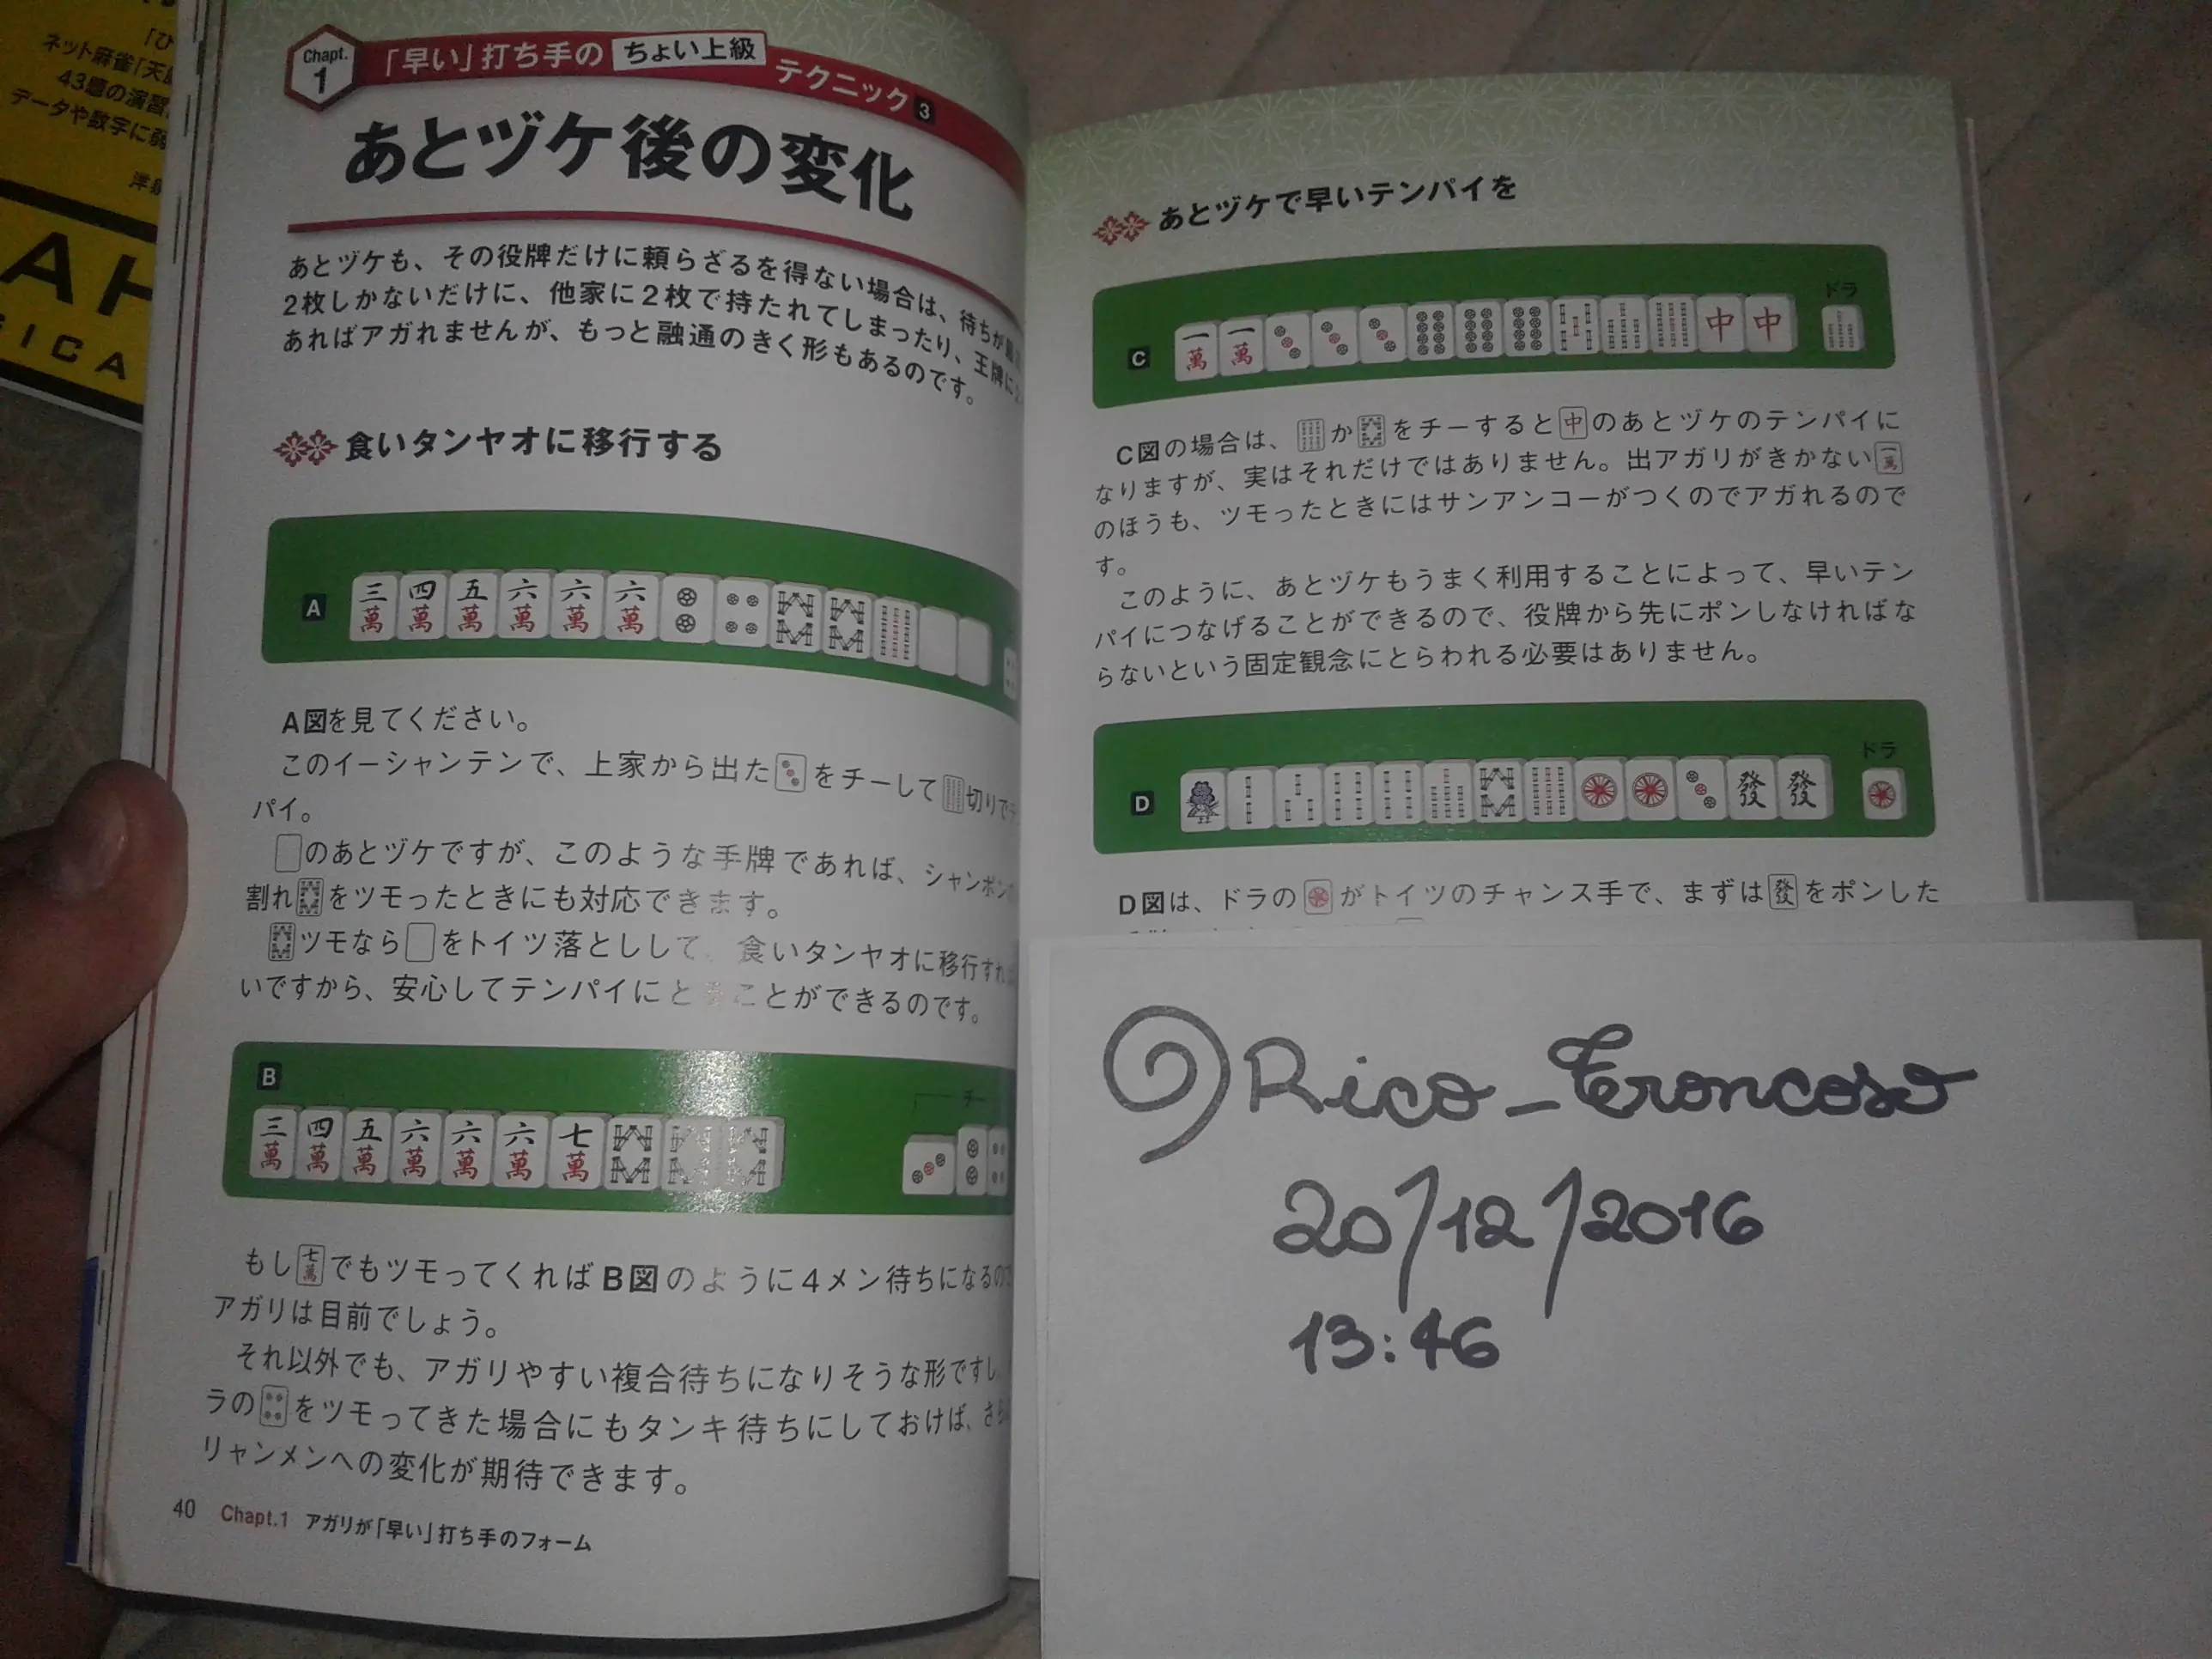 「ひ
ネット麻雀「天
43題の演習
データや数字に弱
AH
GICA
Chapt. 1
「早い」打ち手の ちょい上級 テクニック 3
あとヅケ後の変化
あとヅケも、その役牌だけに頼らざるを得ない場合は、待ちが
2枚しかないだけに、他家に2枚で持たれてしまったり、王牌に
あればアガれませんが、もっと融通のきく形もあるのです。
食いタンヤオに移行する
A
三萬 四萬 五萬 六萬 六萬 六萬
A図を見てください。
このイーシャンテンで、上家から出た をチーして 切りでテ
パイ。
のあとヅケですが、このような手牌であれば、シャンポンの
割れ をツモったときにも対応できます。
ツモなら をトイツ落としして、食いタンヤオに移行すれ
いですから、安心してテンパイにとることができるのです。
B
チ
三萬 四萬 五萬 六萬 六萬 六萬 七萬
もし 七萬 でもツモってくればB図のように4メン待ちになるの
アガリは目前でしょう。
それ以外でも、アガリやすい複合待ちになりそうな形ですし
ラの をツモってきた場合にもタンキ待ちにしておけば、さら
リャンメンへの変化が期待できます。
40 Chapt.1 アガリが「早い」打ち手のフォーム
あとヅケで早いテンパイを
ドラ
C
一萬 一萬 中 中
C図の場合は、 か をチーすると 中 のあとヅケのテンパイに
なりますが、実はそれだけではありません。出アガリがきかない 一萬
のほうも、ツモったときにはサンアンコーがつくのでアガれるので
す。
このように、あとヅケもうまく利用することによって、早いテン
パイにつなげることができるので、役牌から先にポンしなければな
らないという固定観念にとらわれる必要はありません。
ドラ
D
發 發
D図は、ドラの がトイツのチャンス手で、まずは 發 をポンした
@Rico_Troncoso
20/12/2016
13:46